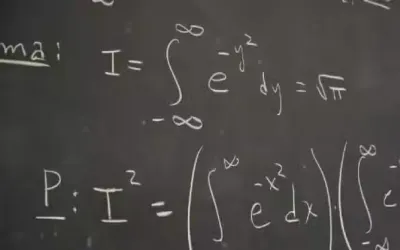 ma: I = ∫_{-∞}^{∞} e^{-y²} dy = √π
P: I² = (∫^{∞} e^{-x²} dx) · (∫_{-∞}^{∞} e^-